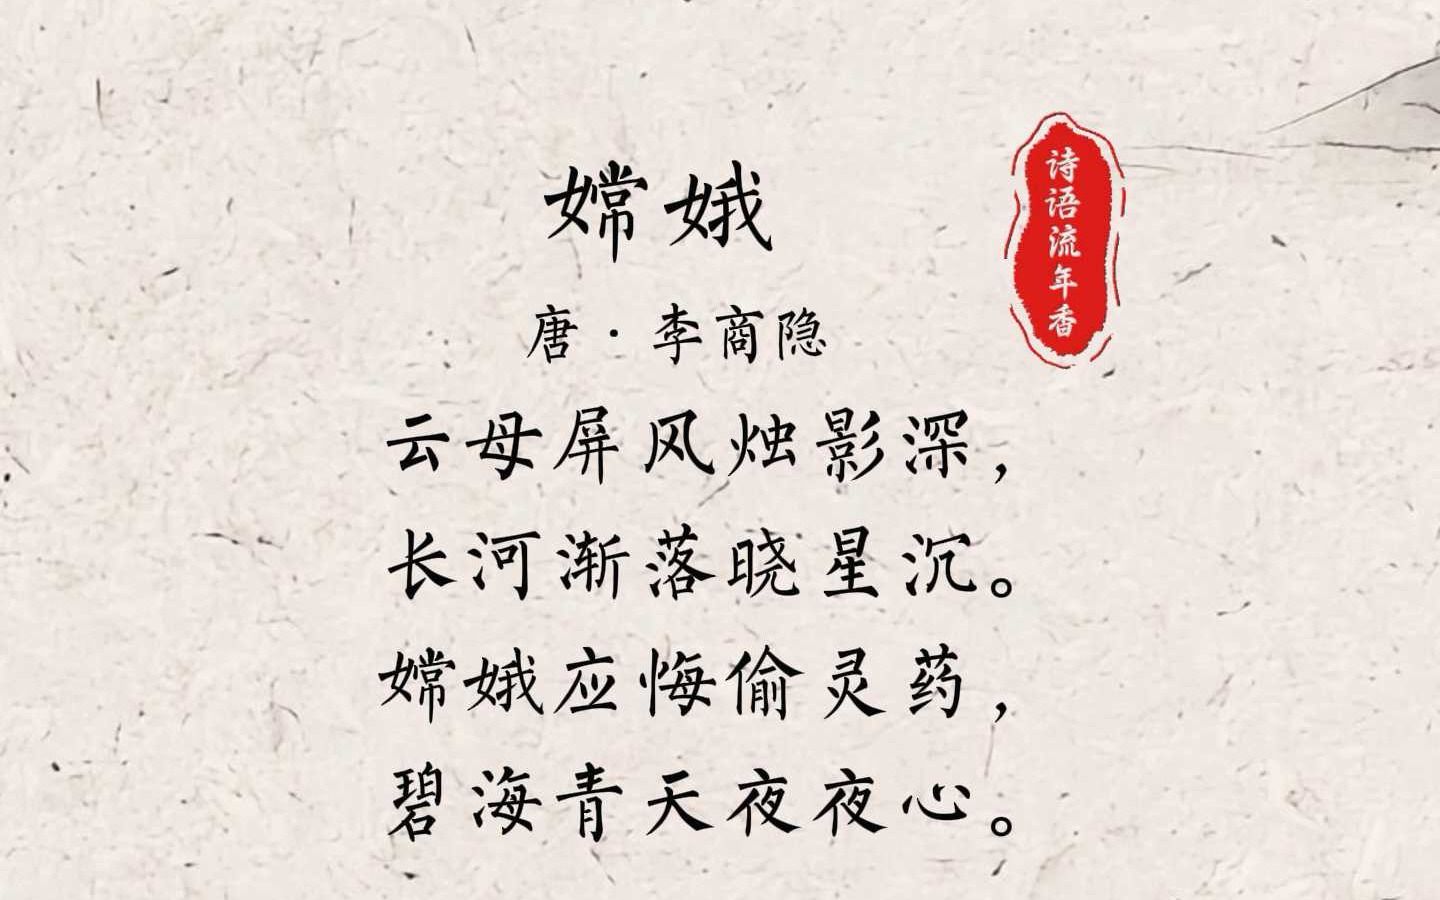 嫦娥
唐·李商隐
云母屏风烛影深，
长河渐落晓星沉。
嫦娥应悔偷灵药，
碧海青天夜夜心。
诗语流年香